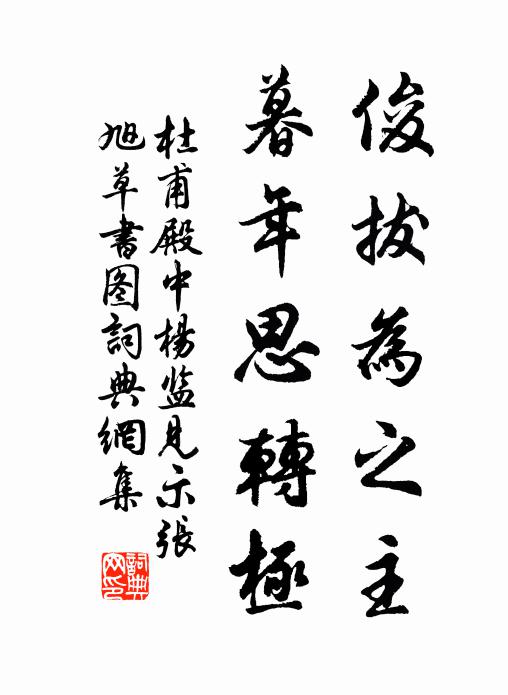 俊拔為之主
暮年思轉極
杜甫殿中楊监見示張
旭草書图詞典網集
詞典
网印